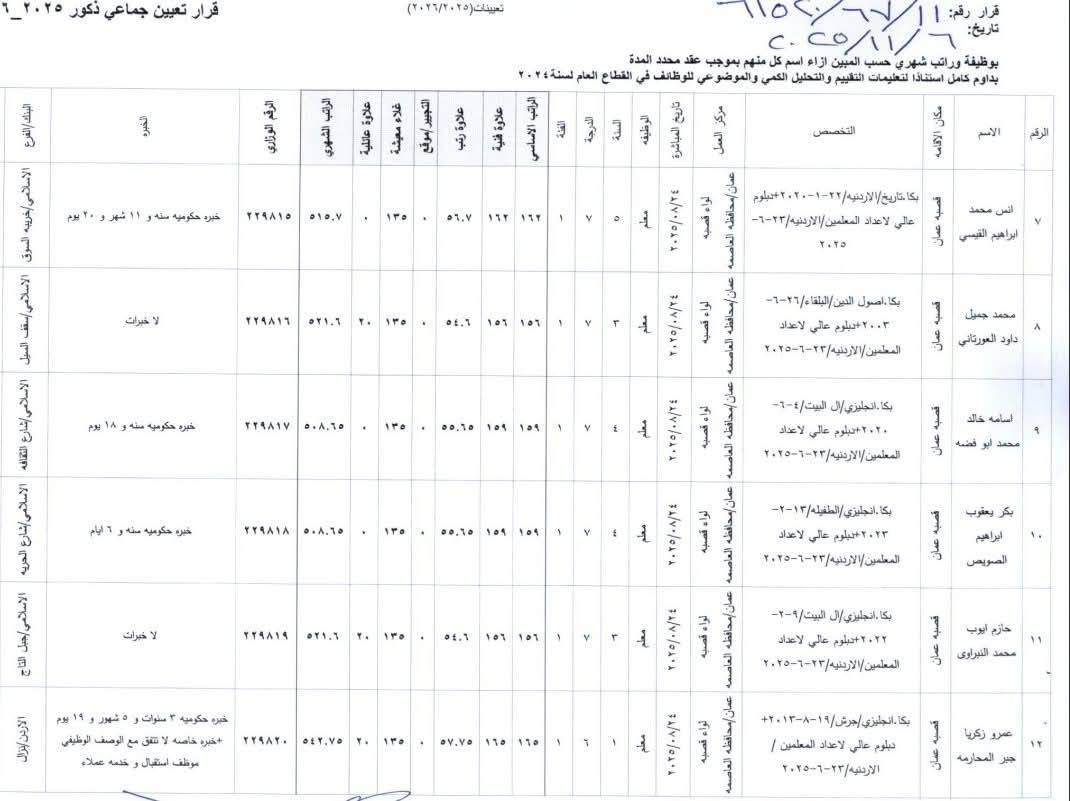 قرار تعيين جماعي ذكور ٢٠٢٥_٦
تعيينات(٢٠٢٦/٢٠٢٥)
قرار رقم: ١١/٦٧/
تاريخ: ٢٠٢٥/١١/٦
بوظيفة وراتب شهري حسب المبين ازاء اسم كل منهم بموجب عقد محدد المدة
بدوام كامل استنادًا لتعليمات التقييم والتحليل الكمي والموضوعي للوظائف في القطاع العام لسنة٢٠٢٤
الرقم الاسم مكان الاقامه التخصص مركز العمل تاريخ المباشرة الوظيفه السنة الدرجة الفئة الراتب الاساسي علاوة فنية علاوة رتب التجيير/موقع غلاء معيشة علاوة عائلية الراتب الشهري الرقم الوزاري الخبره البنك/الفرع
٧ انس محمد ابراهيم القيسي قصبة عمان بكا.تاريخ/الاردنيه/٢٢-١-٢٠٢٠+دبلوم عالي لاعداد المعلمين/الاردنيه/٢٣-٦-٢٠٢٥ عمان/محافظه العاصمه لواء قصبه ٢٠٢٥/٠٨/٢٤ معلم ٥ ٧ ١ ١٦٢ ١٦٢ ٥٦.٧ ٠ ١٣٥ ٠ ٥١٥.٧ ٢٢٩٨١٥ خبره حكوميه سنه و ١١ شهر و ٢٠ يوم الاسلامي/خريبه السوق
٨ محمد جميل داود العورتاني قصبة عمان بكا.اصول الدين/البلقاء/٢٦-٦-٢٠٠٣+دبلوم عالي لاعداد المعلمين/الاردنيه/٢٣-٦-٢٠٢٥ عمان/محافظه العاصمه لواء قصبه ٢٠٢٥/٠٨/٢٤ معلم ٣ ٧ ١ ١٥٦ ١٥٦ ٥٤.٦ ٠ ١٣٥ ٢٠ ٥٢١.٦ ٢٢٩٨١٦ لا خبرات الاسلامي/سقف السيل
٩ اسامه خالد محمد ابو فضه قصبة عمان بكا.انجليزي/ال البيت/٤-٦-٢٠٢٠+دبلوم عالي لاعداد المعلمين/الاردنيه/٢٣-٦-٢٠٢٥ عمان/محافظه العاصمه لواء قصبه ٢٠٢٥/٠٨/٢٤ معلم ٤ ٧ ١ ١٥٩ ١٥٩ ٥٥.٦٥ ٠ ١٣٥ ٠ ٥٠٨.٦٥ ٢٢٩٨١٧ خبره حكوميه سنه و ١٨ يوم الاسلامي/شارع الثقافه
١٠ بكر يعقوب ابراهيم الصويص قصبة عمان بكا.انجليزي/الطفيله/١٣-٢-٢٠٢٣+دبلوم عالي لاعداد المعلمين/الاردنيه/٢٣-٦-٢٠٢٥ عمان/محافظه العاصمه لواء قصبه ٢٠٢٥/٠٨/٢٤ معلم ٤ ٧ ١ ١٥٩ ١٥٩ ٥٥.٦٥ ٠ ١٣٥ ٠ ٥٠٨.٦٥ ٢٢٩٨١٨ خبره حكوميه سنه و ٦ ايام الاسلامي/شارع الحريه
١١ حازم ايوب محمد النبراوى قصبة عمان بكا.انجليزي/ال البيت/٩-٢-٢٠٢٢+دبلوم عالي لاعداد المعلمين/الاردنيه/٢٣-٦-٢٠٢٥ عمان/محافظه العاصمه لواء قصبه ٢٠٢٥/٠٨/٢٤ معلم ٣ ٧ ١ ١٥٦ ١٥٦ ٥٤.٦ ٠ ١٣٥ ٢٠ ٥٢١.٦ ٢٢٩٨١٩ لا خبرات الاسلامي/جبل التاج
١٢ عمرو زكريا جبر المحارمه قصبة عمان بكا.انجليزي/جرش/١٩-٨-٢٠١٣+ دبلوم عالي لاعداد المعلمين / الاردنيه/٢٣-٦-٢٠٢٥ عمان/محافظه العاصمه لواء قصبه ٢٠٢٥/٠٨/٢٤ معلم ١ ٦ ١ ١٦٥ ١٦٥ ٥٧.٧٥ ٠ ١٣٥ ٢٠ ٥٤٢.٧٥ ٢٢٩٨٢٠ خبره حكوميه ٣ سنوات و ٥ شهور و ١٩ يوم +خبره خاصه لا تتفق مع الوصف الوظيفي موظف استقبال و خدمه عملاء الاردن/نزال